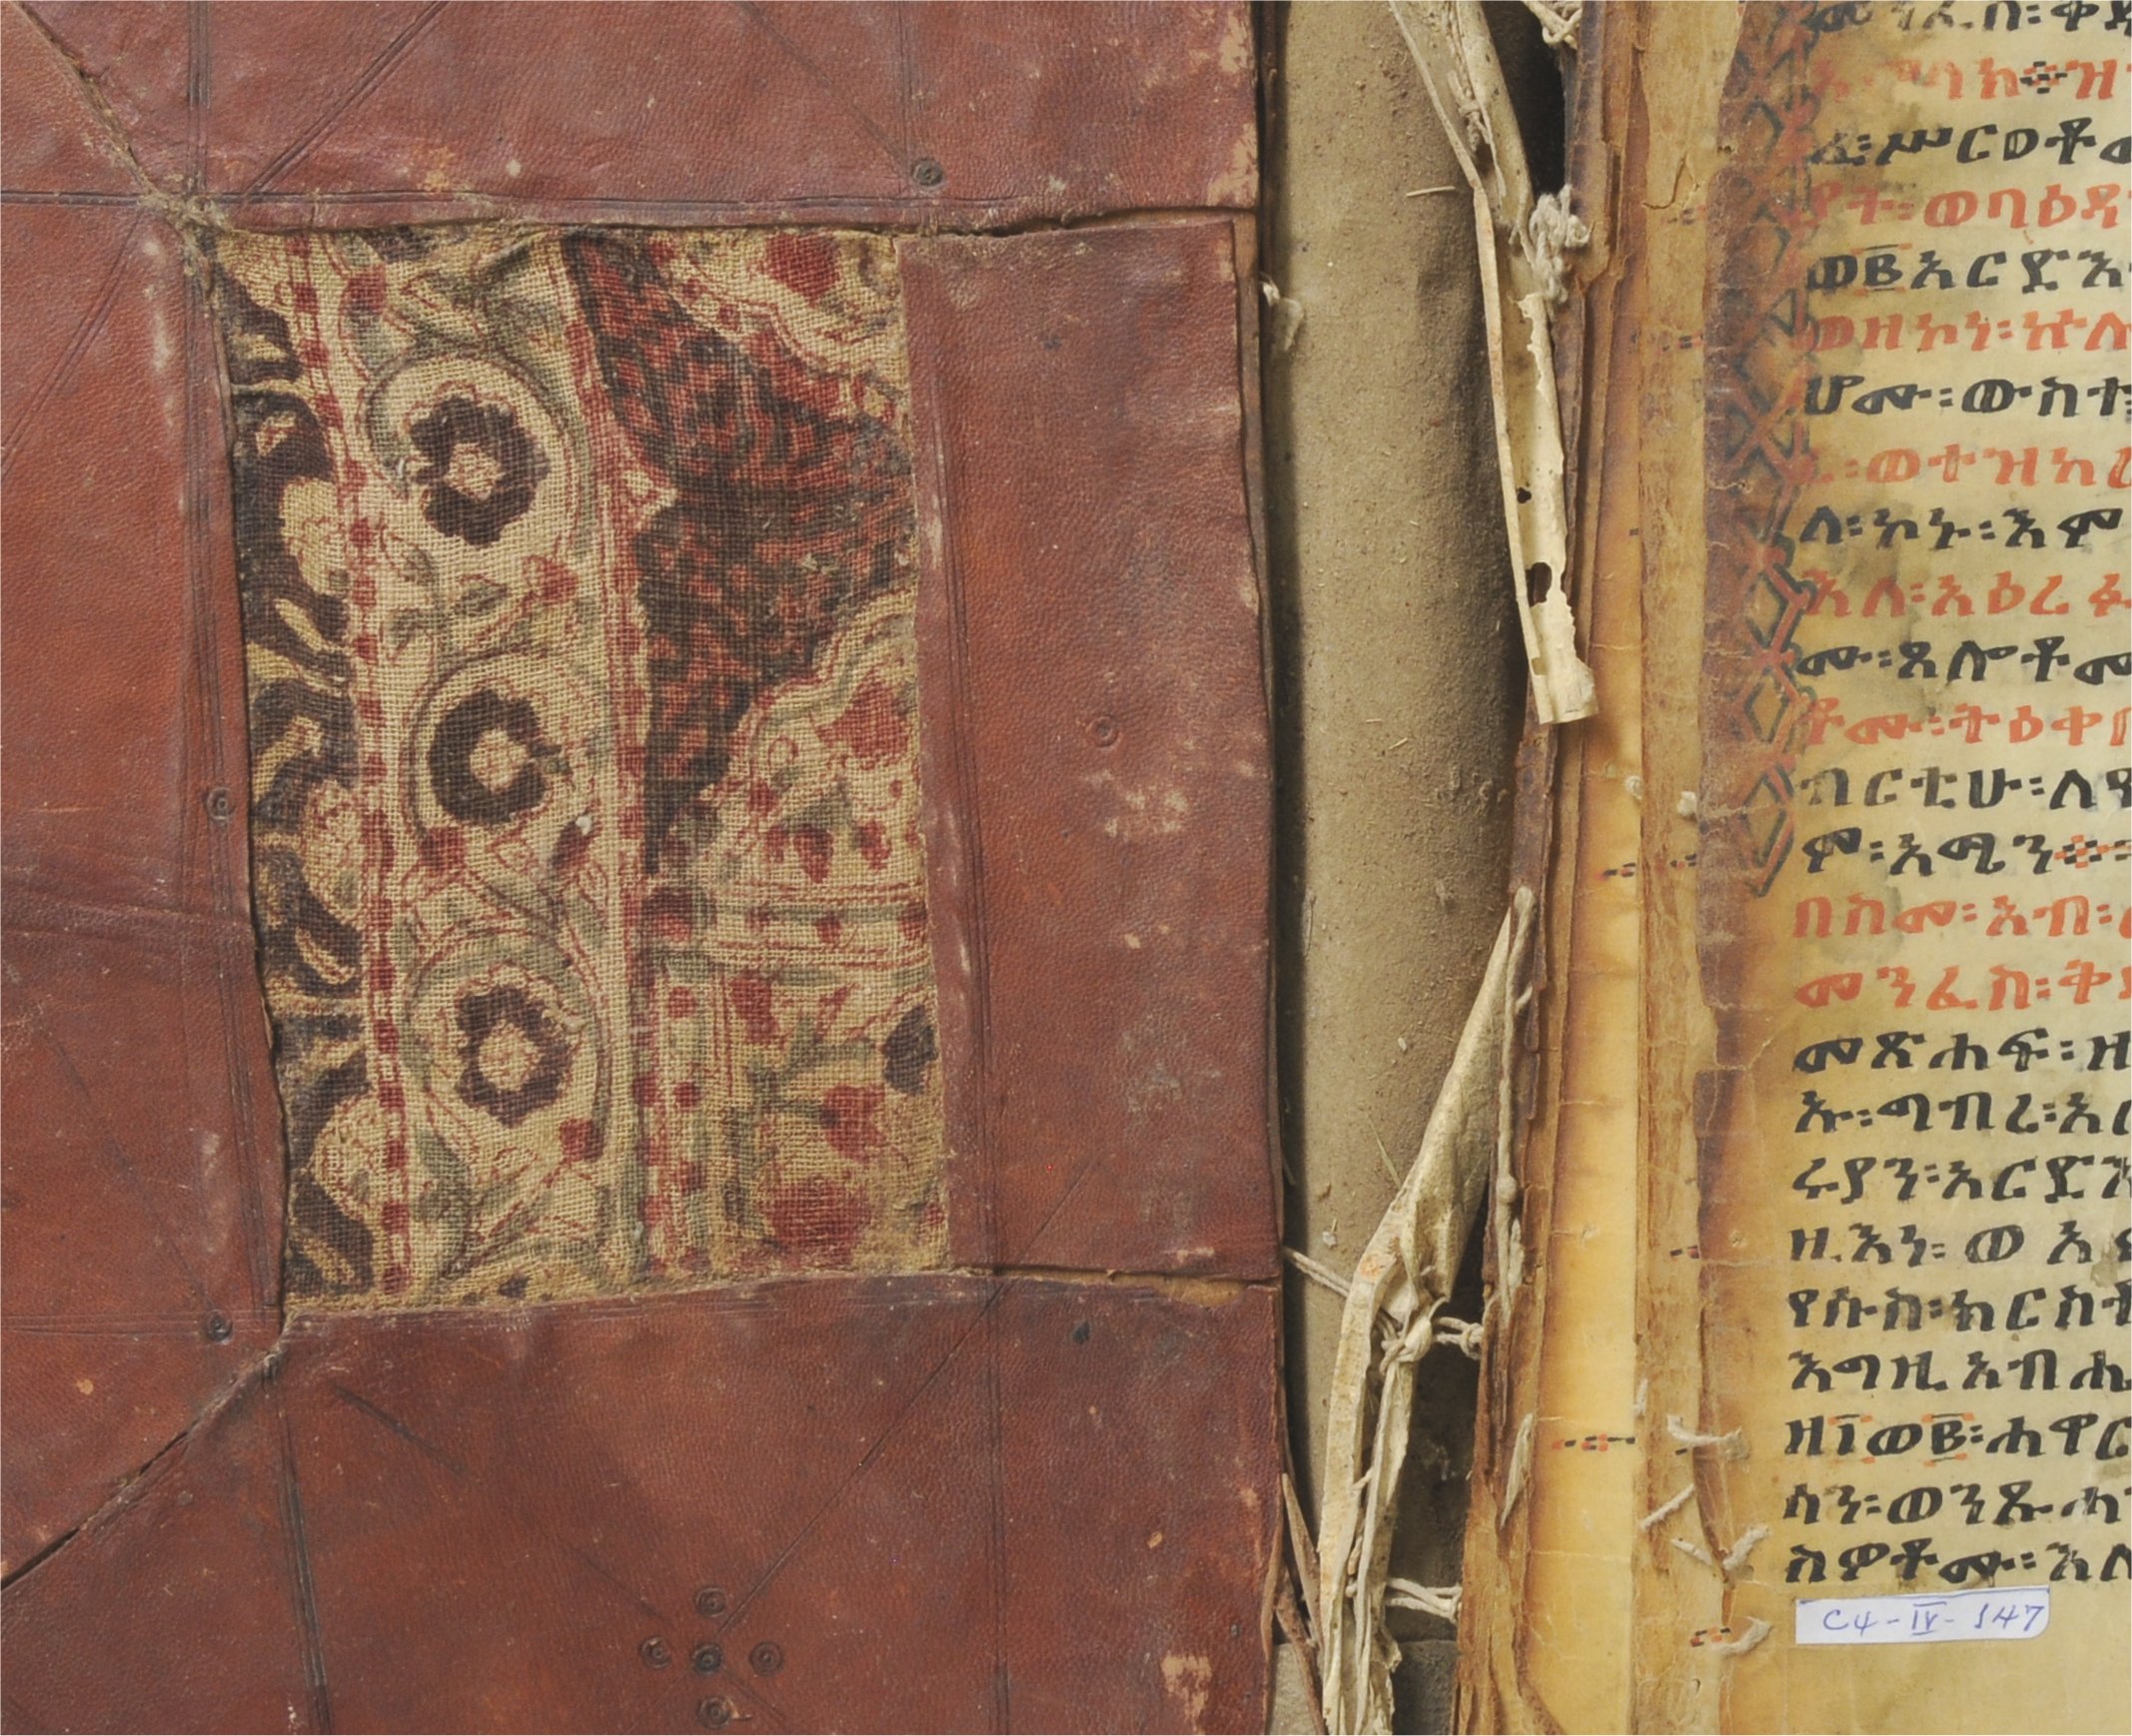 መንፈስ፡ቅዱ
ፈ፡ሥርዐቶ
ት፡ወባዕዳ
ወ፪አርድእ
ወዘኮነ፡ኵሉ
ሆሙ፡ውስተ፡
፡ወተዝካረ
ለ፡ኮኑ፡እም
እለ፡አዕረፉ
ሙ፡ጸሎቶሙ
ቶሙ፡ትዕቀበ
ብርቲሁ፡ለዓ
ም፡አሜን፨
በስመ፡አብ፡
መንፈስ፡ቅዱ
መጽሐፍ፡ዘ
ኡ፡ግብረ፡አ
ሩያን፡አርድእ
ዚአነ፡ወአ
የሱስ፡ክርስቶ
እግዚአብሔ
ዘ፲ወ፪፡ሐዋር
ሳን፡ወንጹሓ
ስምዖቶሙ፡እለ
C4-IV-147